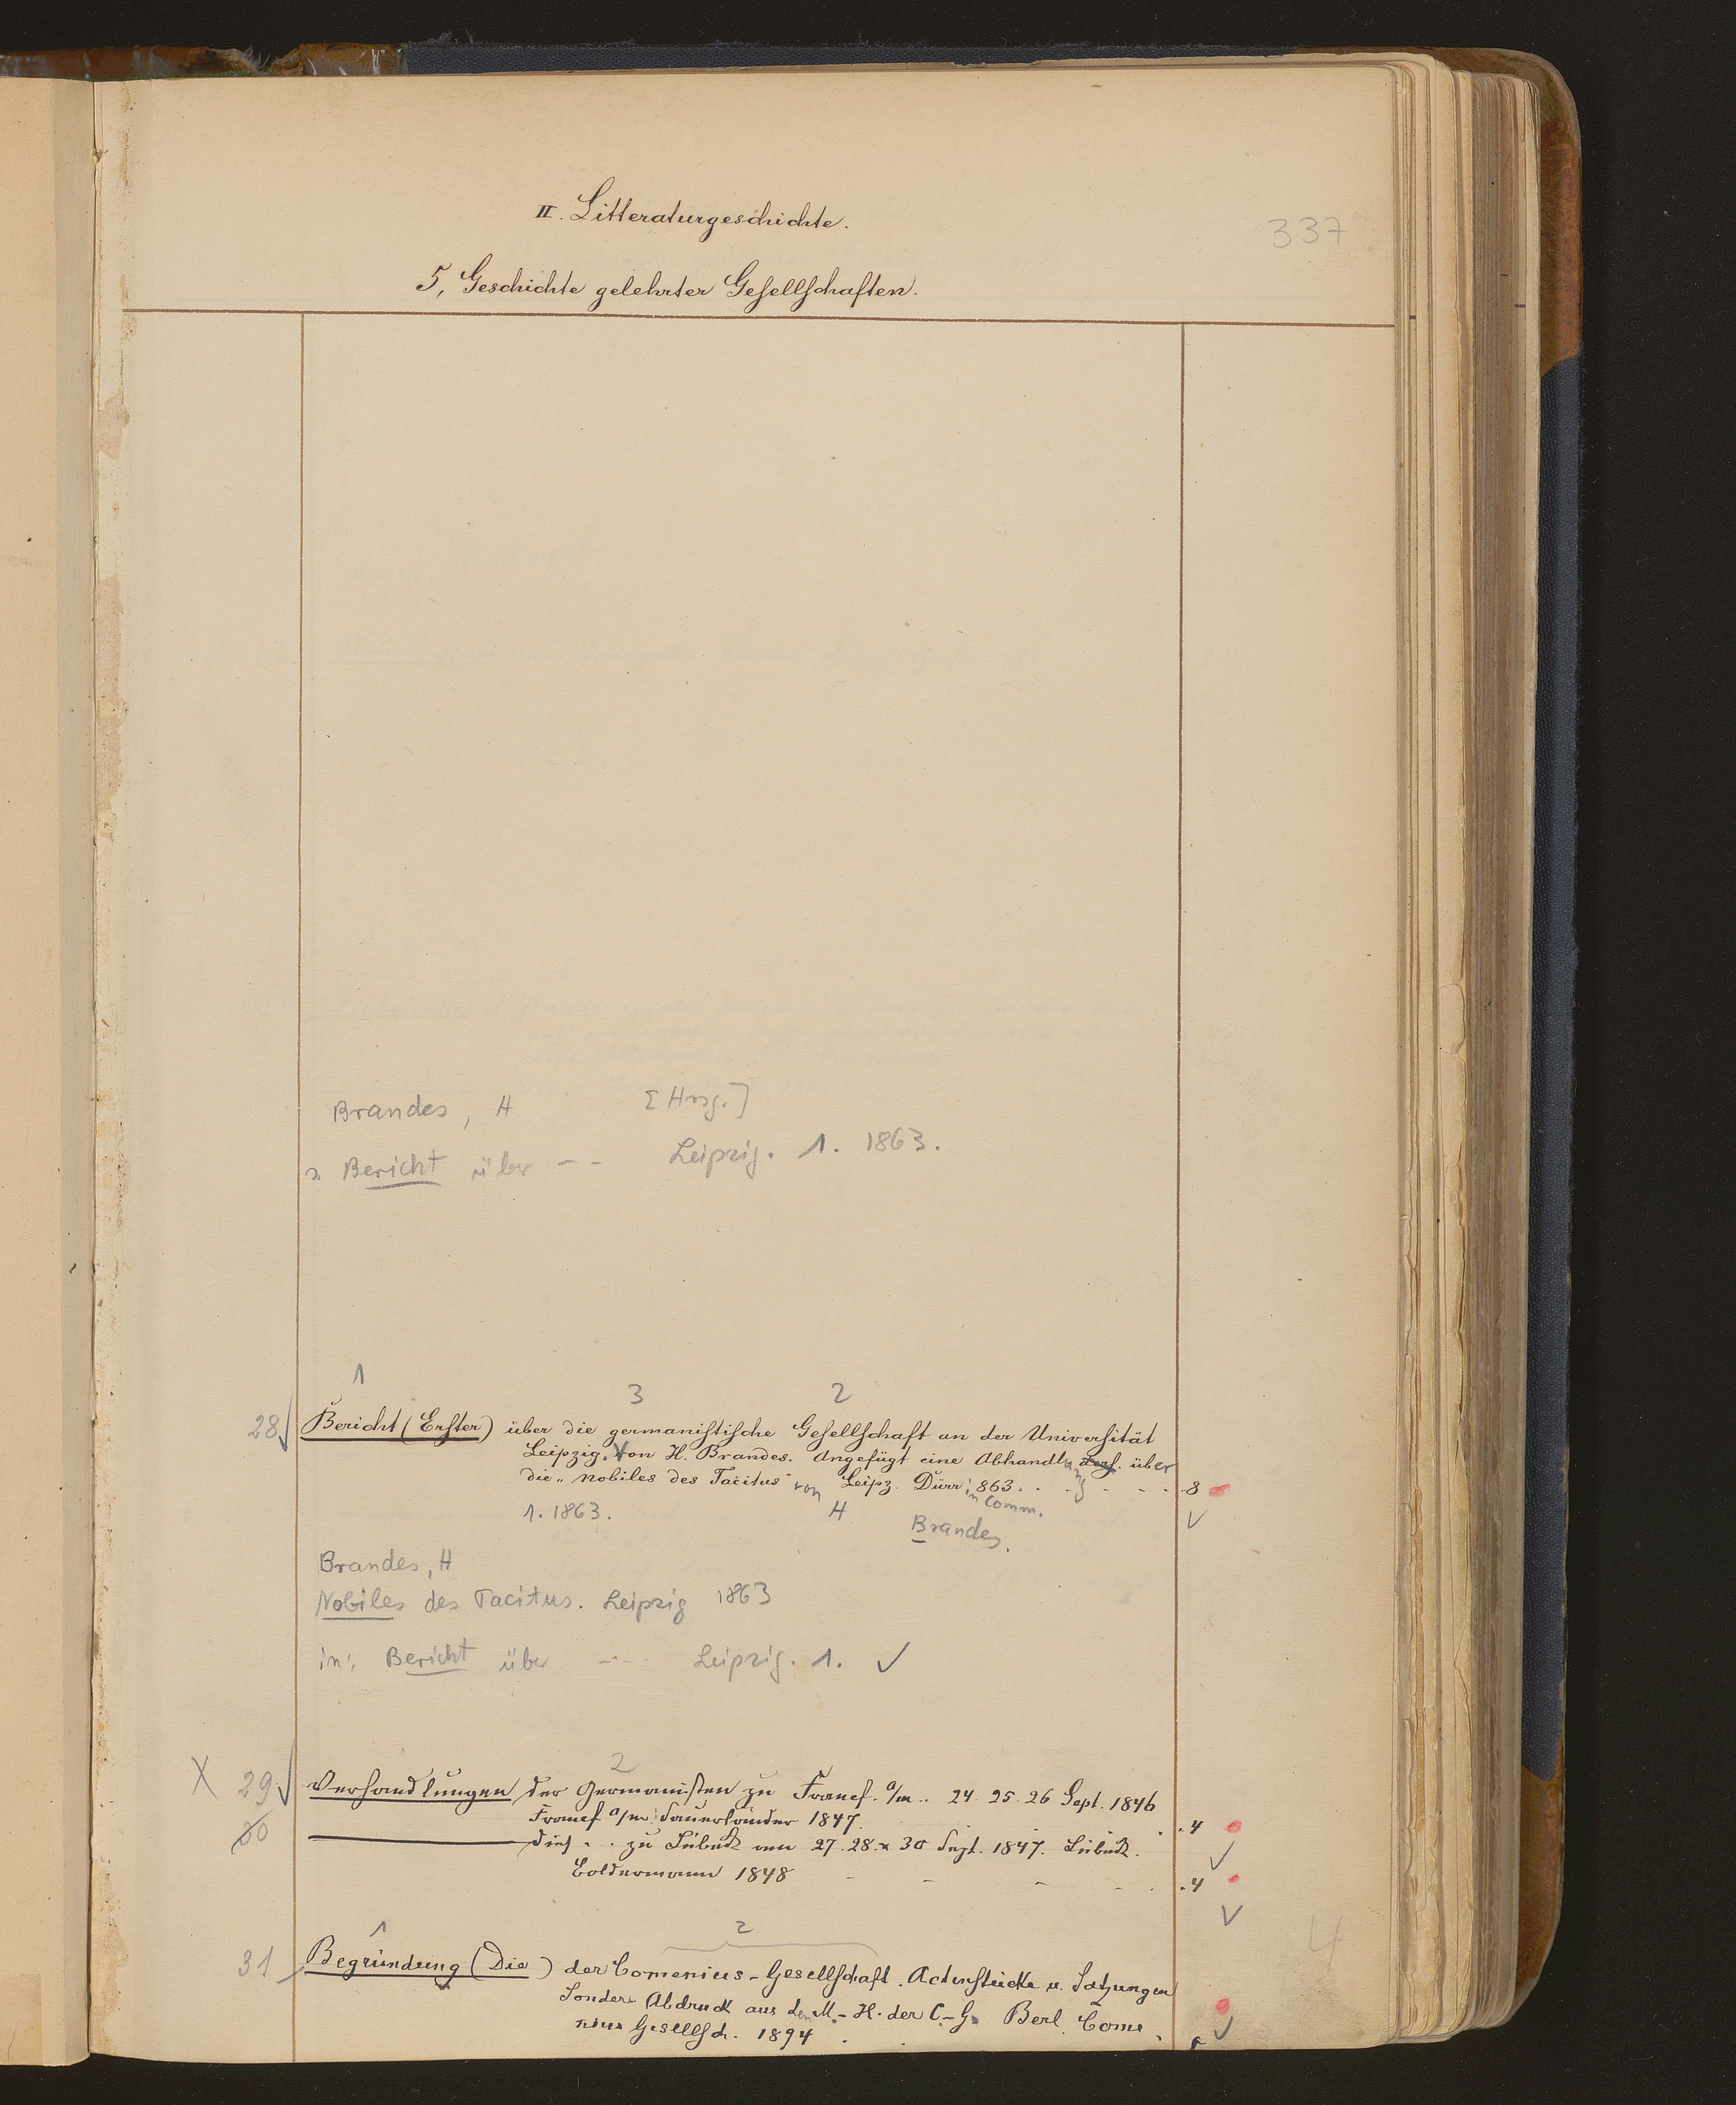 II. Litteraturgeschichte.
337
5, Geschichte gelehrter Gesellschaften.
Brandes, H [Hrsg.]
s. Bericht über -- Leipzig. 1. 1863.
1 3 2
28 √ Bericht (Erster) über die germanistische Gesellschaft an der Universität
Leipzig. Von H. Brandes. Angefügt eine Abhandlung dess. über
die „Nobiles des Tacitus" von Leipz. Dürr in Comm. 863 . . . . . . 8
1. 1863. H Brandes. √
Brandes, H
Nobiles des Tacitus. Leipzig 1863
in: Bericht über --- Leipzig. 1. √
2
X 29 √ Verhandlungen der Germanisten zu Francf. a/m.. 24. 25. 26 Sept. 1846
Francf a/m: Sauerländer 1847. . . 4
30 ——— dies . . zu Lübeck am 27. 28. u 30 Sept. 1847. Lübeck. √
Boldemann 1848 - - - - . . 4
√
1 2
4
31 Begründung (Die) der Comenius-Gesellschaft. Actenstücke u. Satzungen
Sonder-Abdruck aus den M.-H. der C.-G. Berl. Come
nius Gesellsch. 1894 . . . √